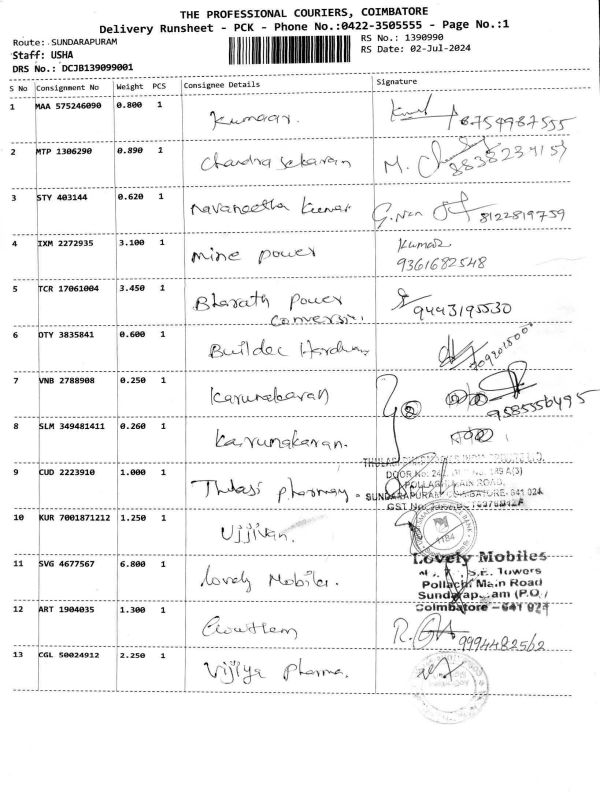 THE PROFESSIONAL COURIERS, COIMBATORE
Delivery Runsheet - PCK - Phone No.:0422-3505555 - Page No.:1
Route: SUNDARAPURAM
RS No.: 1390990
Staff: USHA
RS Date: 02-Jul-2024
DRS No.: DCJB139099001
S No Consignment No Weight PCS Consignee Details Signature
1 MAA 575246090 0.800 1 Kumaar. 8754987555
2 MTP 1306290 0.890 1 Chandra Sekaran M. 8838234157
3 STY 403144 0.620 1 Navaneetha Kumar 8122819759
4 IXM 2272935 3.100 1 Mine power Kumar
9361682548
5 TCR 17061004 3.450 1 Bharath Power 9443195530
Conversion.
6 OTY 3835841 0.600 1 Builder
7 VNB 2788908 0.250 1 Karunakaran 9585556495
8 SLM 349481411 0.260 1 Karunakaran.
9 CUD 2223910 1.000 1 Thulasi pharmacy.
POLLACHI MAIN ROAD,
SUNDARAPURAM COIMBATORE- 641 024
GST No:
10 KUR 7001871212 1.250 1 Ujjivan.
1184
11 SVG 4677567 6.800 1 Lovely Mobiles.
Lovely Mobiles
S.E. Towers
Pollachi Main Road
Sundarapuram (P.O)
Coimbatore - 641 024
12 ART 1904035 1.300 1 R. 9994482562
13 CGL 50024912 2.250 1 Vijiya pharma.